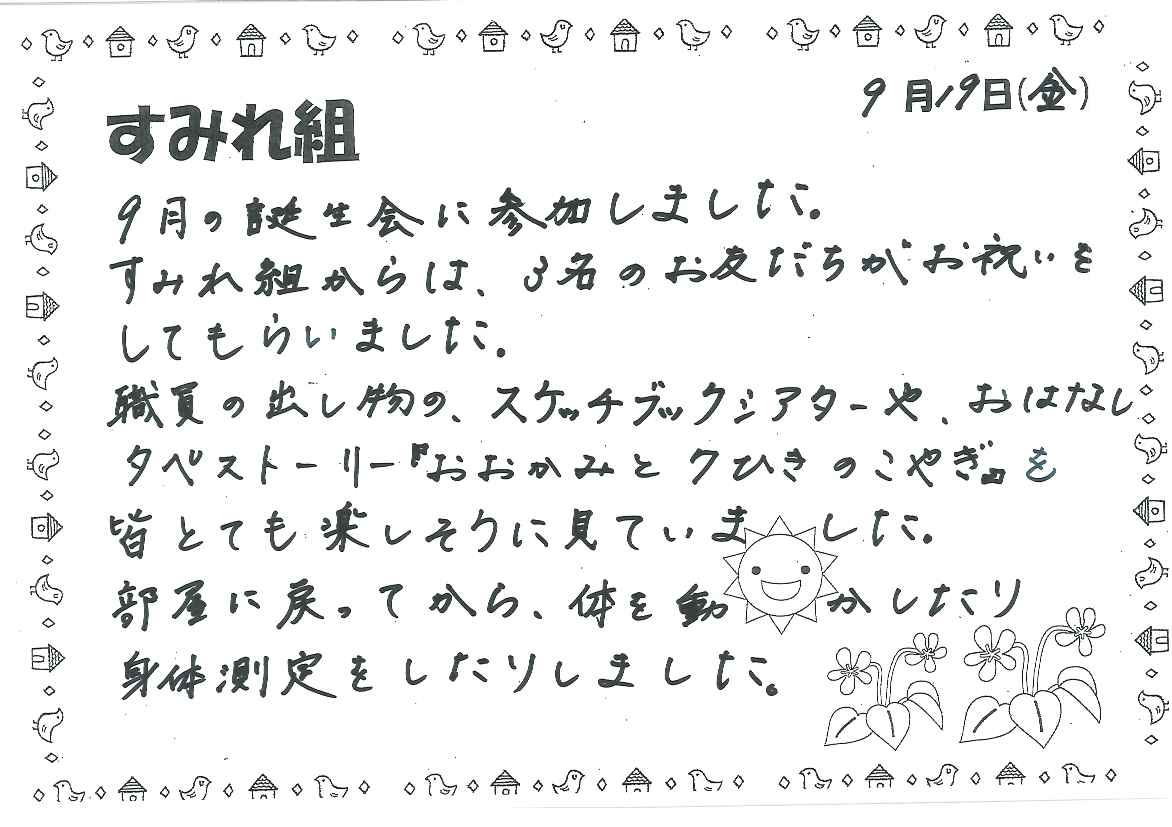 9月19日(金)
すみれ組
9月の誕生会に参加しました。
すみれ組からは、3名のお友だちがお祝いを
してもらいました。
職員の出し物の、スケッチブックシアターや、おはなし
タペストーリー『おおかみと7ひきのこやぎ』を
皆とても楽しそうに見ていました。
部屋に戻ってから、体を動かしたり
身体測定をしたりしました。